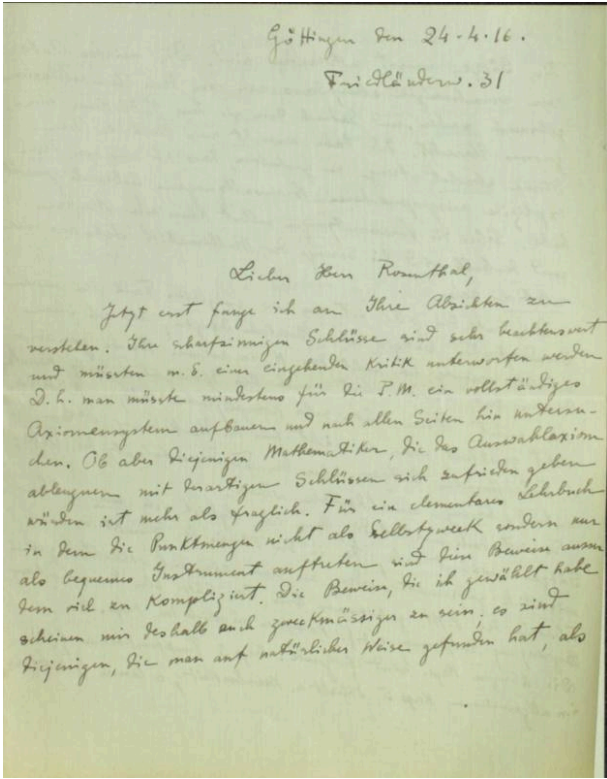 Göttingen den 24.4.16.
Friedländerw. 31
Lieber Herr Rosenthal,
Jetzt erst fange ich an Ihre Absichten zu
verstehen. Ihre scharfsinnigen Schlüsse sind sehr beachtenswert
und müssten m. E. einer eingehenden Kritik unterworfen werden
D. h. man müsste mindestens für die P.M. ein vollständiges
Axiomensystem aufbauen und nach allen Seiten hin untersu-
chen. Ob aber diejenigen Mathematiker, die das Auswahlaxiom
ableugnen mit derartigen Schlüssen sich zufrieden geben
würden ist mehr als fraglich. Für ein elementares Lehrbuch
in dem die Punktmengen nicht als Selbstzweck sondern nur
als bequemes Instrument auftreten sind diese Beweise ausser
dem viel zu kompliziert. Die Beweise, die ich gewählt habe
scheinen mir deshalb auch zweckmässiger zu sein; es sind
diejenigen, die man auf natürlicher Weise gefunden hat, als